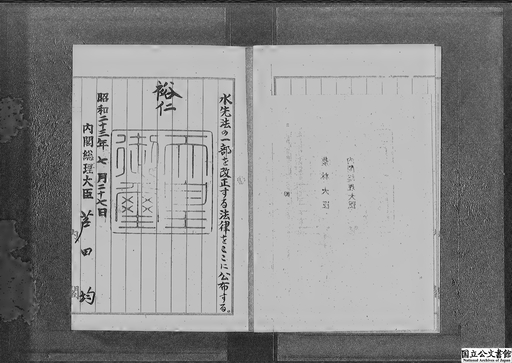 水先法の一部を改正する法律をここに公布する。
裕仁
天皇御璽
昭和二十三年七月二十七日
内閣総理大臣 芦田均
内閣総理大臣
農林大臣
国立公文書館
National Archives of Japan